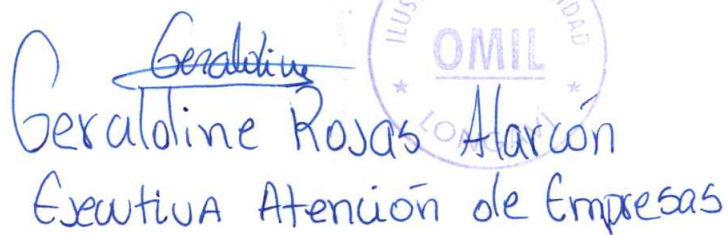 Geraldine
OMIL
Geraldine Rojas Alarcón
Ejecutiva Atención de Empresas